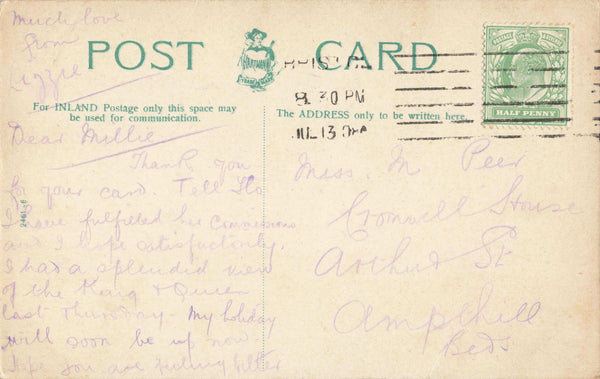 Much love
from
Lizzie
POST CARD
For INLAND Postage only this space may
be used for communication.
The ADDRESS only to be written here.
BRISTOL
8.30 PM
JUL 13
HALF PENNY
Dear Millie
Thank you
for your card. Tell Flo
I have fulfilled her commissions
and I hope satisfactorily.
I had a splendid view
of the King & Queen
last Thursday. My holiday
will soon be up now.
Hope you are feeling fitter
Miss. M Peer
Cromwell House
Arthur St
Ampthill
Beds